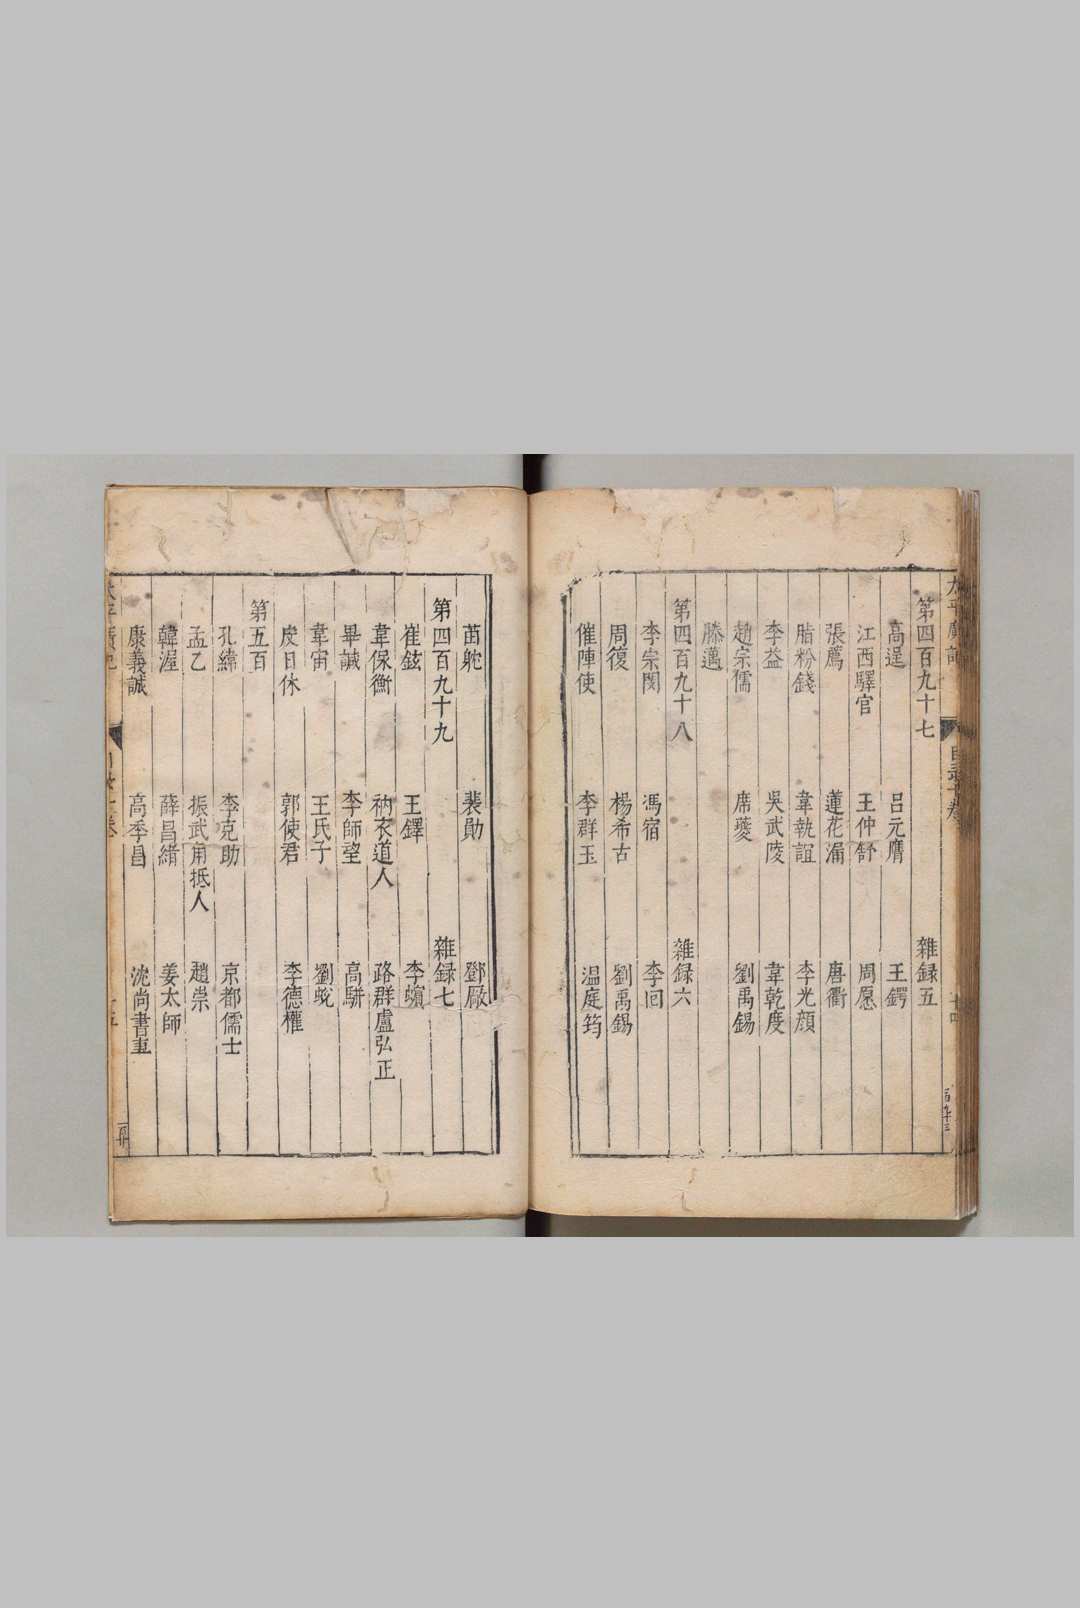 第四百九十七　雜録五
高逞　呂元膺　王鍔
江西驛官　王仲舒　周愿
張薦　蓮花漏　唐衢
脂粉錢　韋執誼　李光顔
李益　吳武陵　韋乾度
趙宗儒　席夔　劉禹錫
滕邁
第四百九十八　雜録六
李宗閔　馮宿　李回
周復　楊希古　劉禹錫
催陣使　李群玉　温庭筠
苗躭　裴勛　鄧厰
第四百九十九　雜録七
崔鉉　王鐸　李蠙
韋保衡　衲衣道人　路群盧弘正
畢諴　李師望　高駢
韋宙　王氏子　劉蛻
皮日休　郭使君　李德權
第五百
孔緯　李克助　京都儒士
孟乙　振武角抵人　趙崇
韓渥　薛昌緒　姜太師
康義誠　高季昌　沈尚書妻